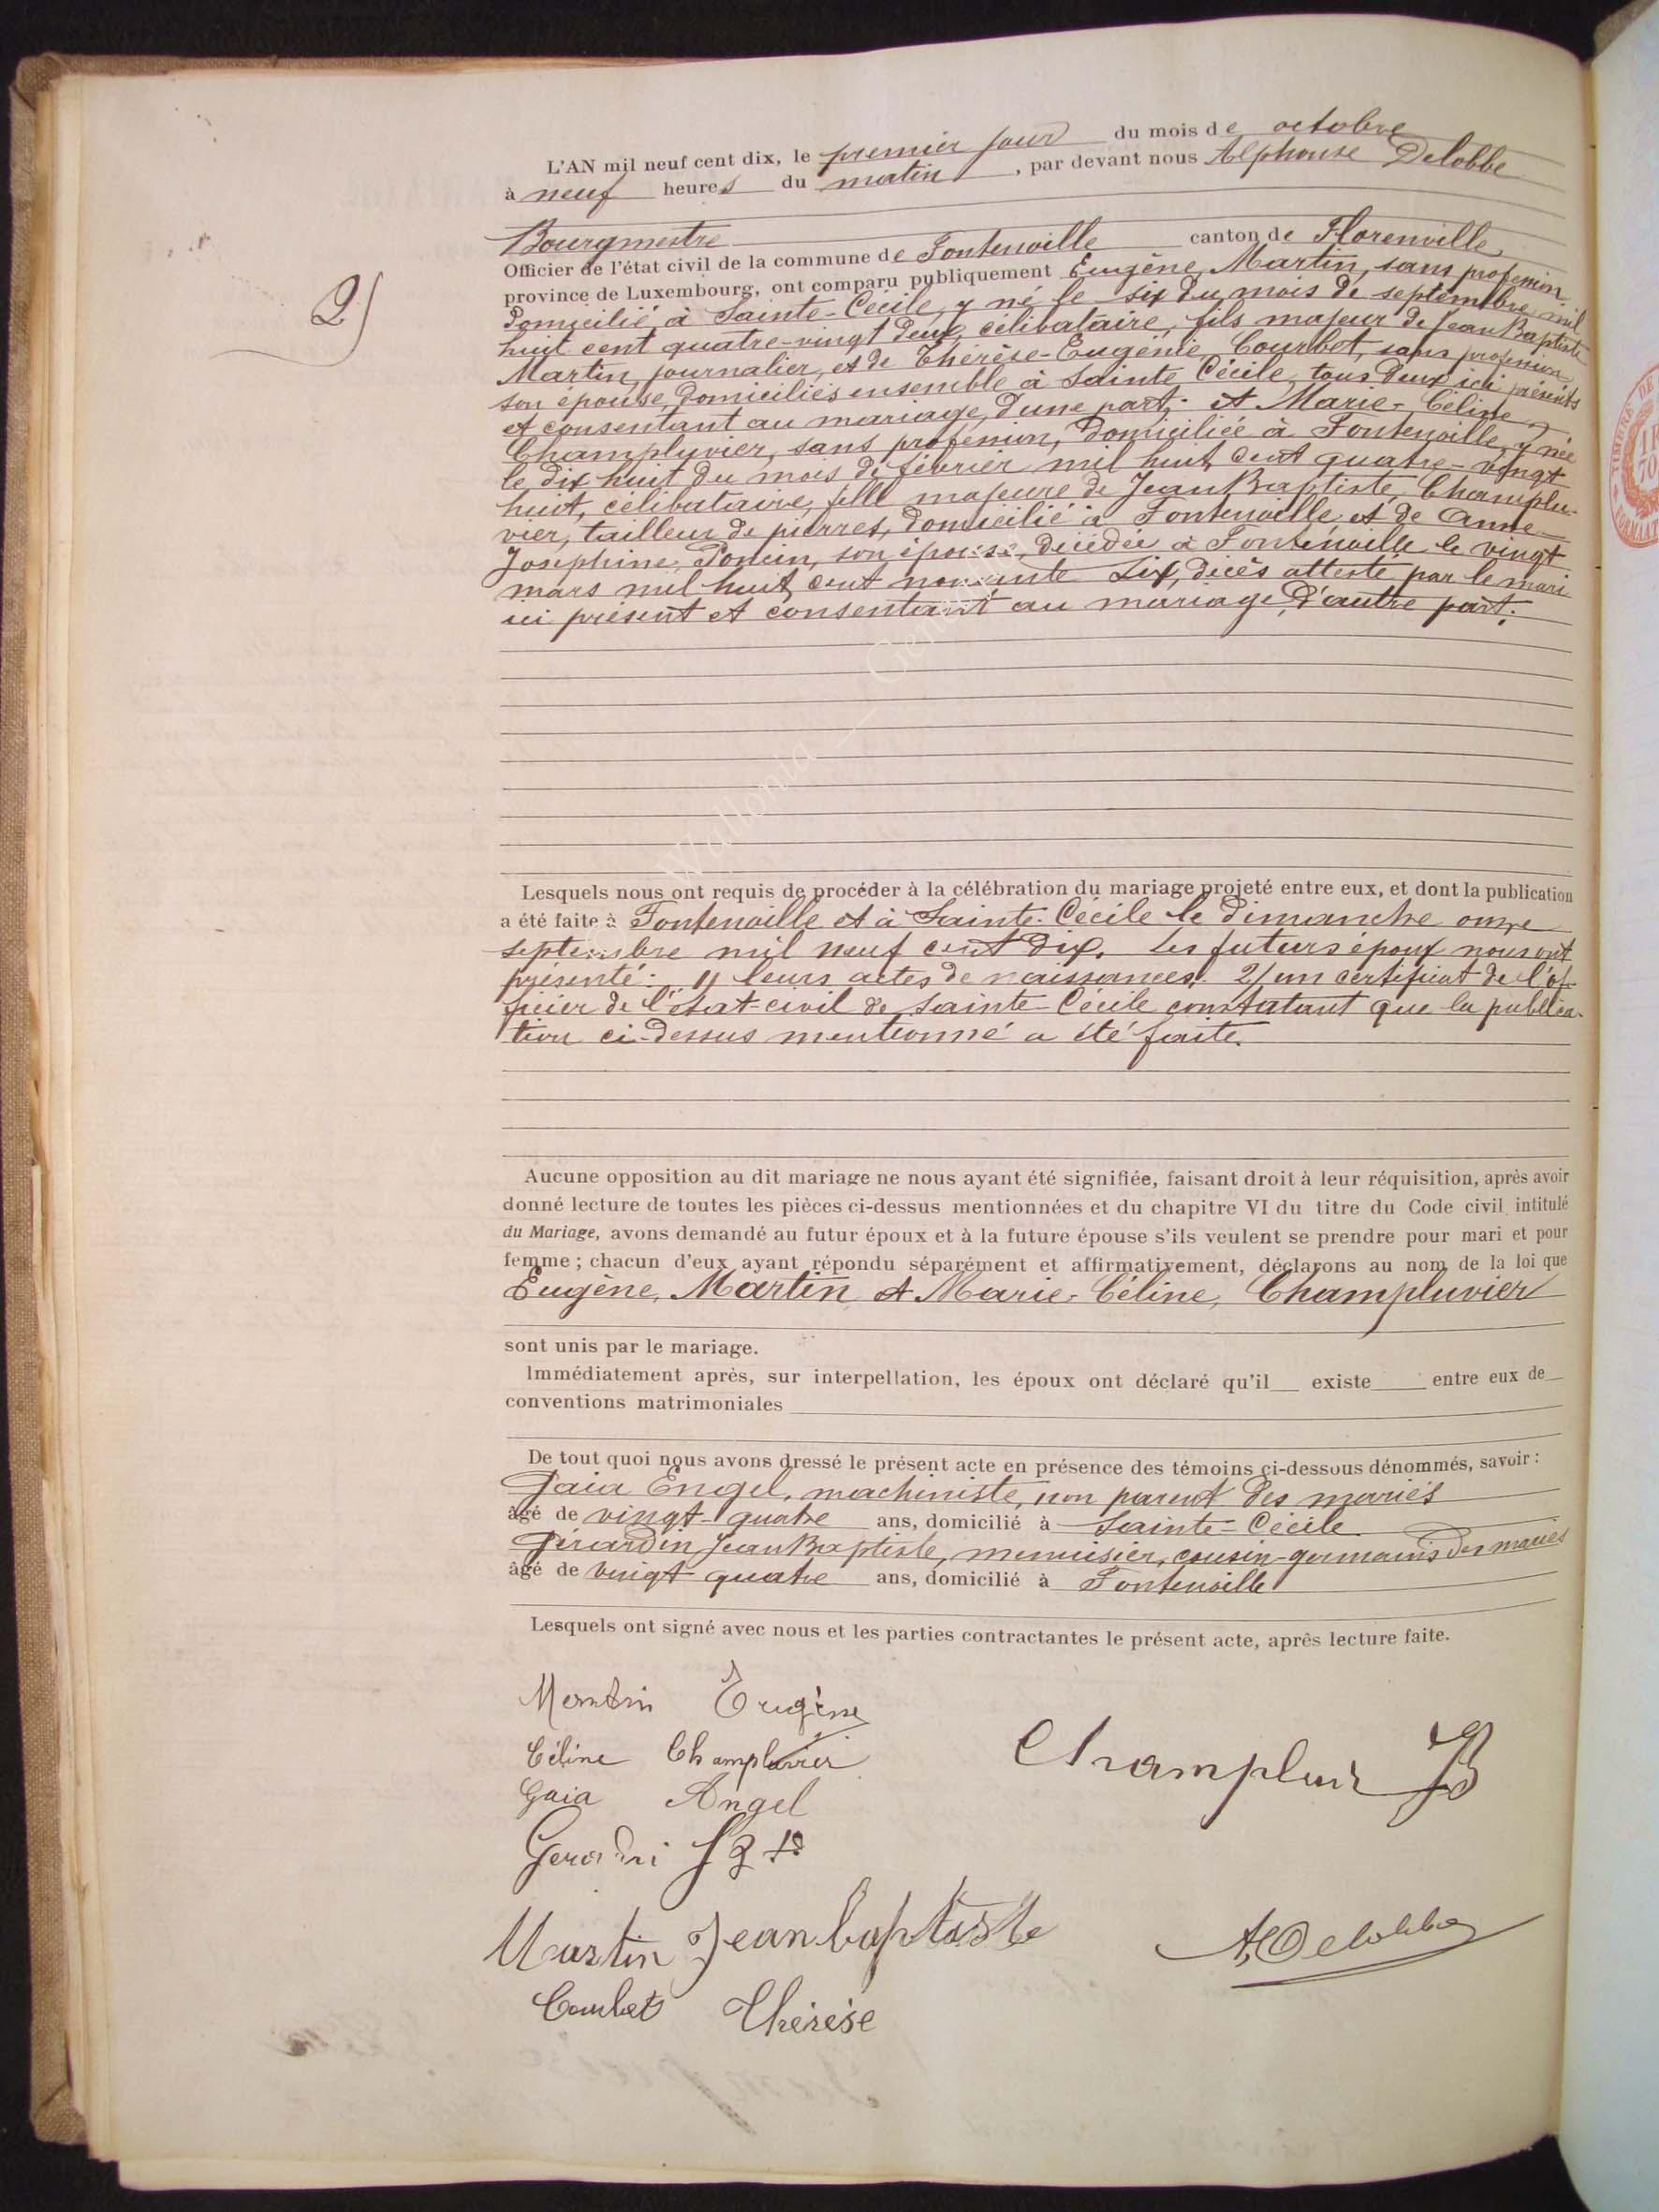 L'AN mil neuf cent dix, le premier jour du mois de octobre
à neuf heures du matin, par devant nous Alphonse Delobbe
Bourgmestre
Officier de l'état civil de la commune de Fontenoille canton de Florenville,
province de Luxembourg, ont comparu publiquement Eugène, Martin, sans profession
domicilié à Sainte-Cécile, y né le six du mois de septembre mil
huit cent quatre-vingt deux, célibataire, fils majeur de Jean Baptiste
Martin, journalier, et de Thérèse-Eugénie Courbet, sans profession
son épouse, domiciliés ensemble à Sainte Cécile, tous deux ici présents
et consentant au mariage, d'une part; et Marie-Céline
Champluvier, sans profession, domiciliée à Fontenoille, y née
le dix huit du mois de février mil huit cent quatre-vingt
huit, célibataire, fille majeure de Jean Baptiste Champlu-
vier, tailleur de pierres, domicilié à Fontenoille et de Anne
Joséphine, Poncin, son épouse, décédée à Fontenoille le vingt
mars mil huit cent nonante six, décès attesté par le mari
ici présent et consentant au mariage, d'autre part.
Lesquels nous ont requis de procéder à la célébration du mariage projeté entre eux, et dont la publication
a été faite à Fontenoille et à Sainte-Cécile le dimanche onze
septembre mil neuf cent dix. Les futurs époux nous ont
présenté: 1/ leurs actes de naissances. 2/ un certificat de l'of-
ficier de l'état-civil de Sainte-Cécile constatant que la publica-
tion ci-dessus mentionné a été faite.
Aucune opposition au dit mariage ne nous ayant été signifiée, faisant droit à leur réquisition, après avoir
donné lecture de toutes les pièces ci-dessus mentionnées et du chapitre VI du titre du Code civil intitulé
du Mariage, avons demandé au futur époux et à la future épouse s'ils veulent se prendre pour mari et pour
femme ; chacun d'eux ayant répondu séparément et affirmativement, déclarons au nom de la loi que
Eugène, Martin et Marie-Céline, Champluvier
sont unis par le mariage.
Immédiatement après, sur interpellation, les époux ont déclaré qu'il existe entre eux de
conventions matrimoniales
De tout quoi nous avons dressé le présent acte en présence des témoins ci-dessous dénommés, savoir :
Gaia Engel, machiniste, non parent des mariés
âgé de vingt-quatre ans, domicilié à Sainte-Cécile
Gérardin Jean Baptiste, menuisier, cousin-germains des mariés
âgé de vingt quatre ans, domicilié à Fontenoille
Lesquels ont signé avec nous et les parties contractantes le présent acte, après lecture faite.
Martin Eugène
Céline Champluvier
Champluvier JB
Gaia Angel
Gerardin JBte
Martin Jean baptiste
ADelobbe
Courbet Thérèse
2/